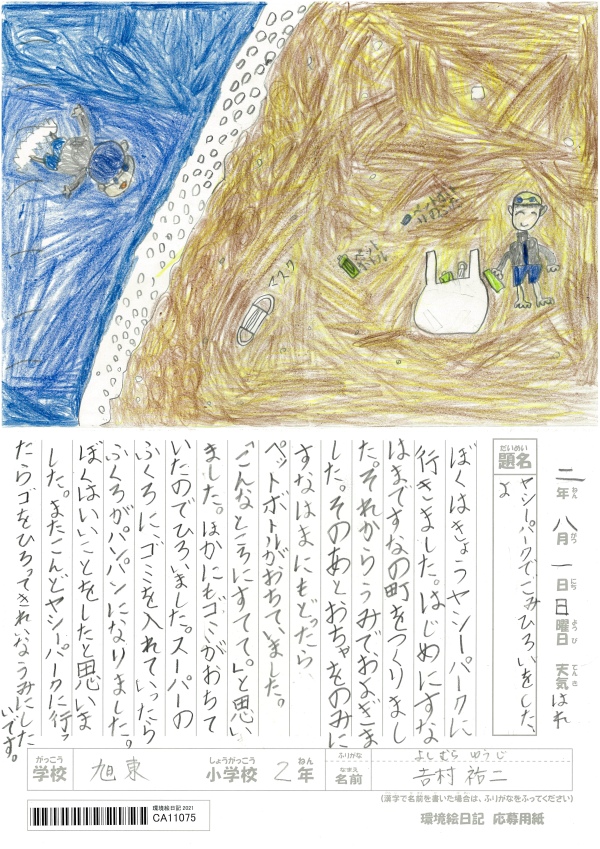 マスク
二年 八月 一日 日曜日 天気 はれ
ねん がつ にち ようび てんき
だいめい
題名
ヤシーパークでごみひろいをした
よ
ぼくはきょうヤシーパークに
行きました。はじめにすな
はまですなの町をつくりまし
た。それからうみでおよぎま
した。そのあとおちゃをのみに
すなはまにもどったら
ペットボトルがおちていました。
「こんなところにすてて。」と思い
ました。ほかにもゴミがおちて
いたのでひろいました。スーパーの
ふくろにゴミを入れていったら
ふくろがパンパンになりました。
ぼくはいいことをしたと思いま
した。またこんどヤシーパークに行っ
たらゴミをひろってきれいなうみにした
いです。
がっこう しょうがっこう ねん ふりがな よしむら ゆうじ
学校 旭東 小学校 2年 なまえ 名前 吉村 祐二
(漢字で名前を書いた場合は、ふりがなをふってください)
環境絵日記 2021
CA11075
環境絵日記 応募用紙